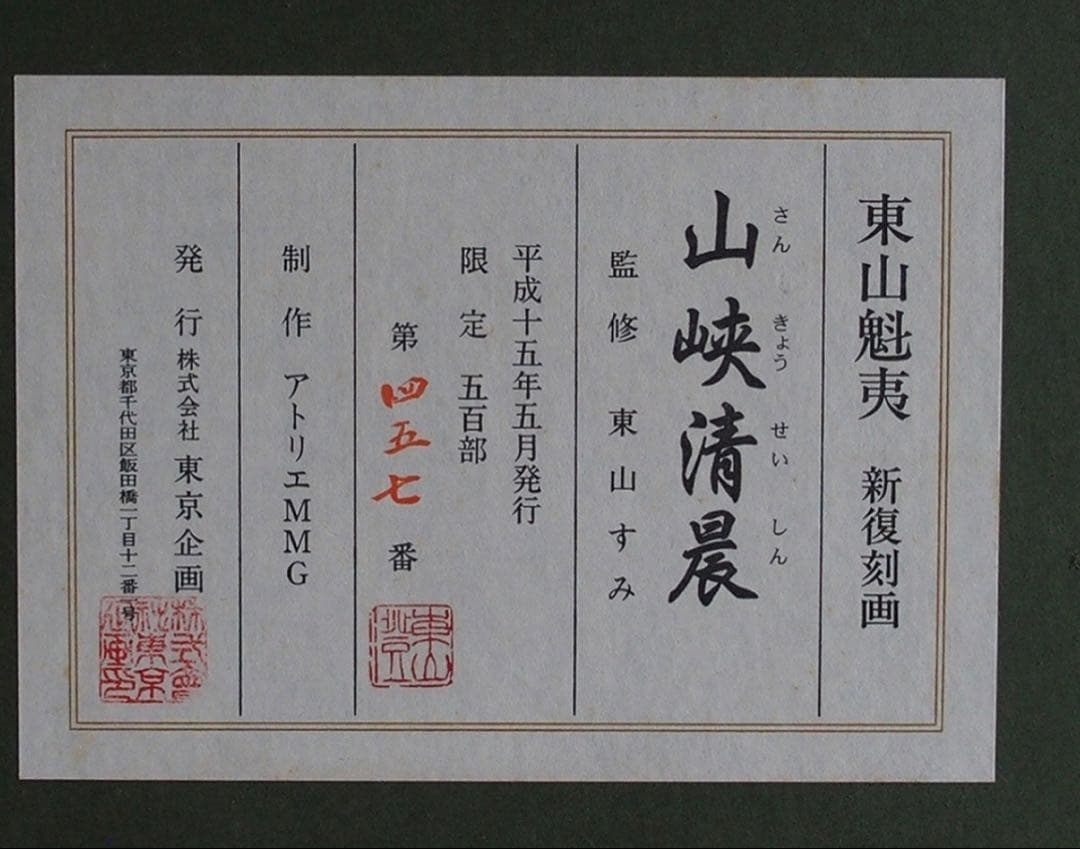 東山魁夷 新復刻画
さん きょう せい しん
山峡清晨
監修 東山すみ
平成十五年五月発行
限定 五百部
第四五七番
制作 アトリエMMG
発行 株式会社 東京企画
東京都千代田区飯田橋一丁目十二番一号